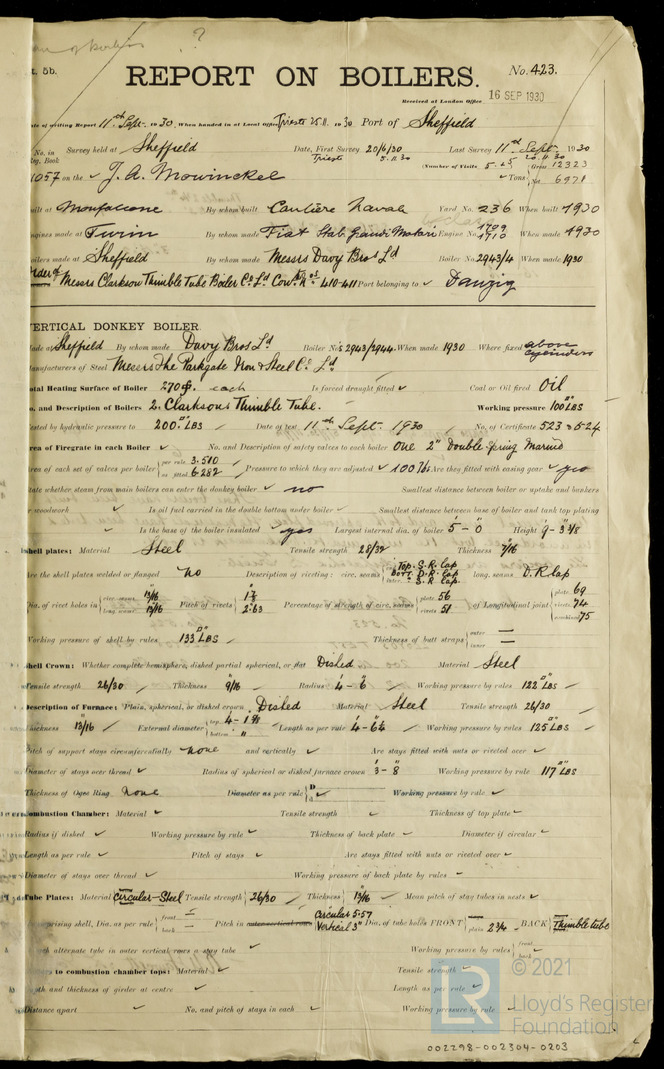 ?
t. 5b.
REPORT ON BOILERS.
No. 423.
Received at London Office 16 SEP 1930
ate of writing Report 11th Sept. 1930. When handed in at Local Office Trieste 25.11.1930 Port of Sheffield
No. in Survey held at Sheffield Date, First Survey 20/6/30 Last Survey 11th Sept. 1930
Reg. Book Trieste 5.11.30 20.11.30
(Number of Visits Gross 12323
1057 on the J. A. Mowinckel Tons Net 6971
uilt at Monfalcone By whom built Cantiere Navale Yard No. 236 When built 1930
ngines made at Turin By whom made Fiat Stab. Grandi Motori Engine No. 1709 1710 When made 1930
oilers made at Sheffield By whom made Messrs Davy Bros Ld Boiler No. 2943/4 When made 1930
Order of Messrs Clarkson Thimble Tube Boiler Co. Ld Cow. Nos 410-411 Port belonging to Danzig
VERTICAL DONKEY BOILER.
ade at Sheffield By whom made Davy Bros Ld Boiler Nos 2943/2944. When made 1930 Where fixed above cylinders
anufacturers of Steel Messrs The Parkgate Iron & Steel Co. Ld
otal Heating Surface of Boiler 270 each Is forced draught fitted Coal or Oil fired Oil
o. and Description of Boilers 2. Clarksons Thimble Tube. Working pressure 100 LBS
ested by hydraulic pressure to 200 LBS Date of test 11th Sept. 1930 No. of Certificate 523 & 524
rea of Firegrate in each Boiler No. and Description of safety valves to each boiler One 2" Double Spring Marine
rea of each set of valves per boiler per rule 3.510 as fitted 6.282 Pressure to which they are adjusted 100 lbs Are they fitted with easing gear yes
tate whether steam from main boilers can enter the donkey boiler no Smallest distance between boiler or uptake and bunkers
r woodwork Is oil fuel carried in the double bottom under boiler Smallest distance between base of boiler and tank top plating
Is the base of the boiler insulated yes Largest internal dia. of boiler 5'-0" Height 9'-3 3/8
Shell plates: Material Steel Tensile strength 28/32 Thickness 7/16
re the shell plates welded or flanged No Description of riveting: circ. seams Top. S.R. Lap Bott. D.R. Lap S.R. Lap. long. seams D.R. Lap
ia. of rivet holes in circ. seams 13/16 long. seams 13/16 Pitch of rivets 2.63 Percentage of strength of circ. seams plate 56 rivets 51 of Longitudinal joint plate 69 rivets 74 combined 75
Working pressure of shell by rules 133 LBS Thickness of butt straps outer — inner —
Shell Crown: Whether complete hemisphere, dished partial spherical, or flat Dished Material Steel
ensile strength 26/30 Thickness 9/16 Radius 4'-6" Working pressure by rules 122 LBS
Description of Furnace: Plain, spherical, or dished crown Dished Material Steel Tensile strength 26/30
hickness 13/16 External diameter top bottom " Length as per rule 4'-6½ Working pressure by rules 125 LBS
itch of support stays circumferentially none and vertically Are stays fitted with nuts or riveted over
iameter of stays over thread Radius of spherical or dished furnace crown 3'-8" Working pressure by rule 117 LBS
hickness of Ogee Ring None Diameter as per rule D d Working pressure by rule.
Combustion Chamber: Material Tensile strength Thickness of top plate
Radius if dished Working pressure by rule Thickness of back plate Diameter if circular
Length as per rule Pitch of stays Are stays fitted with nuts or riveted over
Diameter of stays over thread Working pressure of back plate by rules
Tube Plates: Material Circular-Steel Tensile strength 26/30 Thickness 13/16 Mean pitch of stay tubes in nests
mprising shell, Dia. as per rule front — back — Pitch in outer vertical rows Circular 5.57 Vertical 3" Dia. of tube holes FRONT — plain 2¾ BACK Thimble tube
ch alternate tube in outer vertical rows a stay tube Working pressure by rules front back
s to combustion chamber tops: Material Tensile strength
th and thickness of girder at centre Length as per rule
Distance apart No. and pitch of stays in each Working pressure by rule
LR
© 2021
Lloyd's Register
Foundation
002298-002304-0203